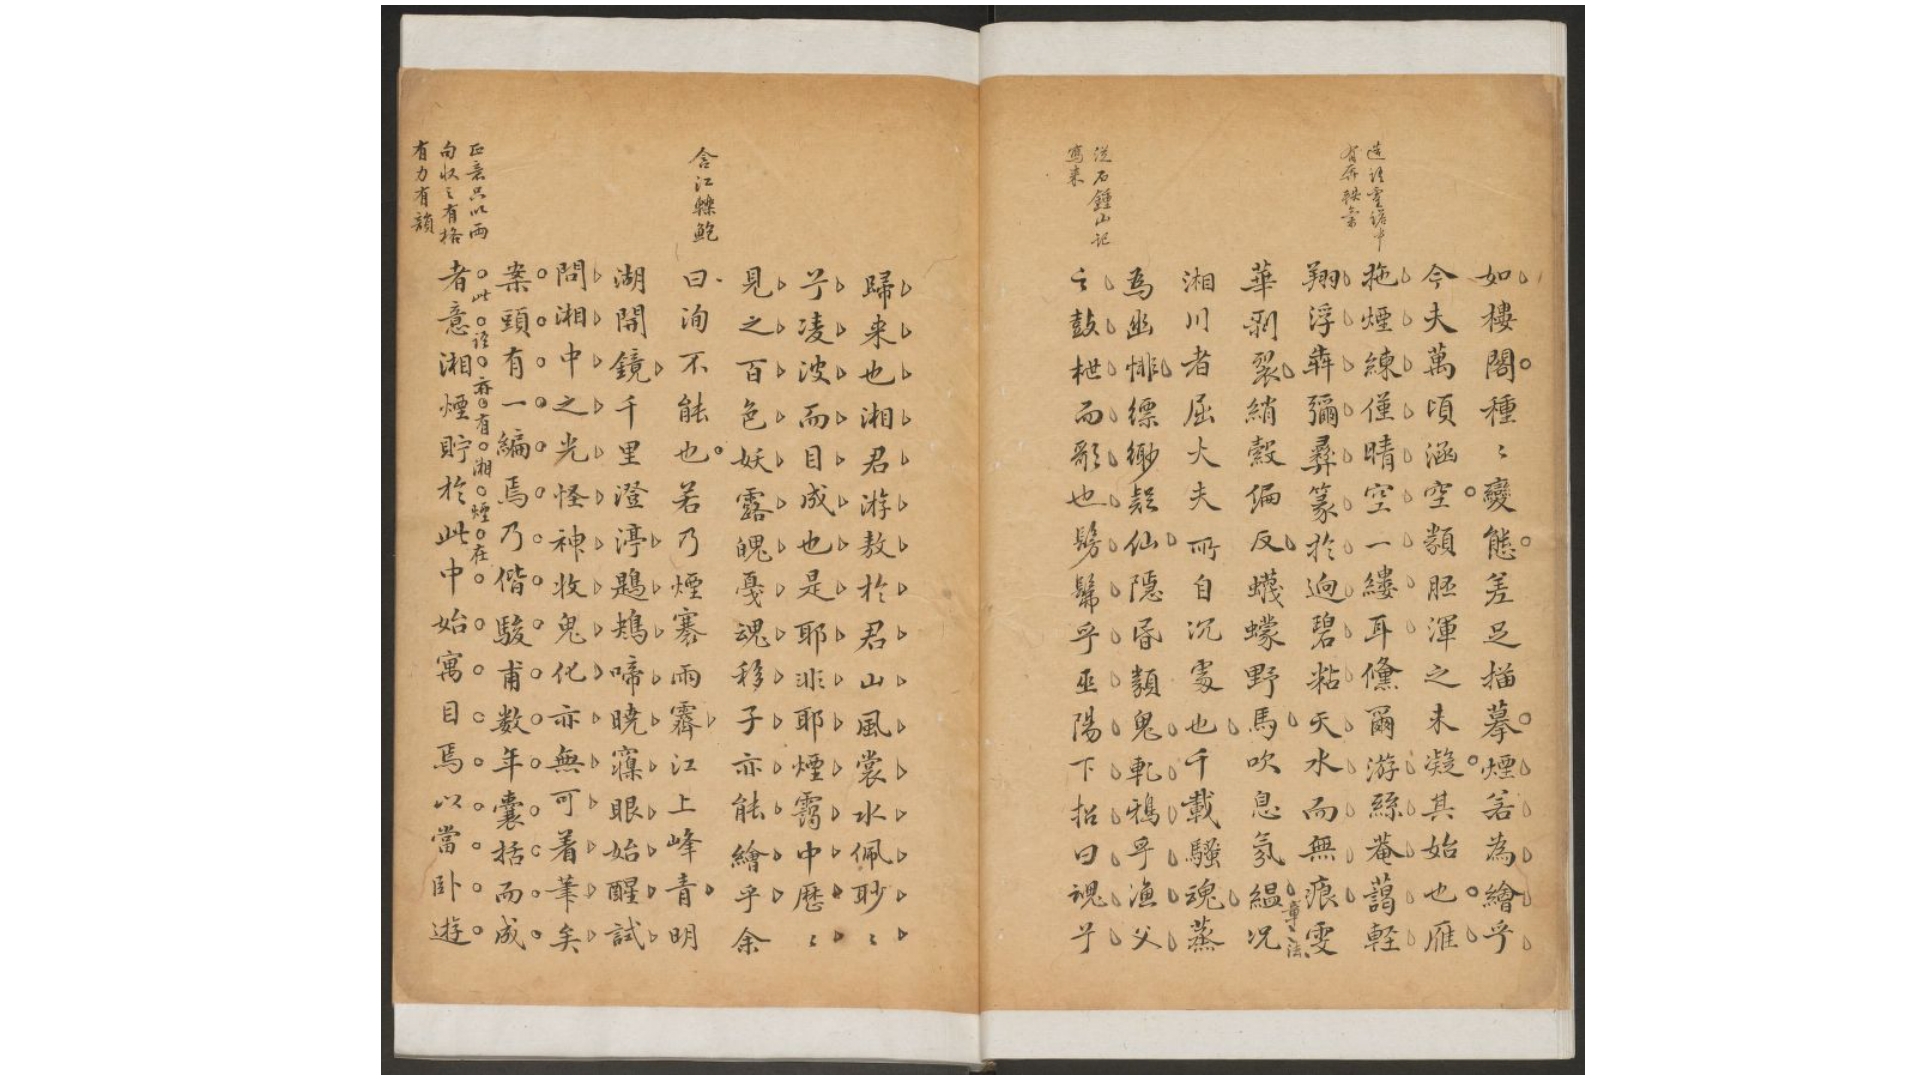 造語
如樓閣種〻變態差足描摹煙若為繪乎
今夫萬頃涵空類胚渾之未凝其始也雁
拖煙練僅晴空一縷耳儵爾游絲菴藹軽
翔浮犇彌彞篆於逈碧粘天水而無痕雯
章法
華剥裂綃縠偏反蠛蠓野馬吹息氛縕况
湘川者屈大夫所自沉處也千載騷魂蒸
為幽悱縹緲類仙隱昬類鬼軋鴉乎漁父
從石鍾山記
寫来
之鼓枻而歌也髣髴乎巫陽下招曰魂兮
歸来也湘君游敖於君山風裳水佩眇〻
兮凌波而目成也是耶非耶煙靄中歷〻
見之百色妖露魄戞魂移子亦能繪乎余
含江轢鮑
曰洵不能也若乃煙寒雨霽江上峰青明
湖開鏡千里澄渟鶗鴂啼曉寱眼始醒試
問湘中之光怪神收鬼化亦無可着筆矣
案頭有一編焉乃偕駿甫数年囊括而成
此語亦有湘煙在
正意只以兩
句收之有格
有力有韻
者意湘煙貯於此中始寓目焉以當卧遊